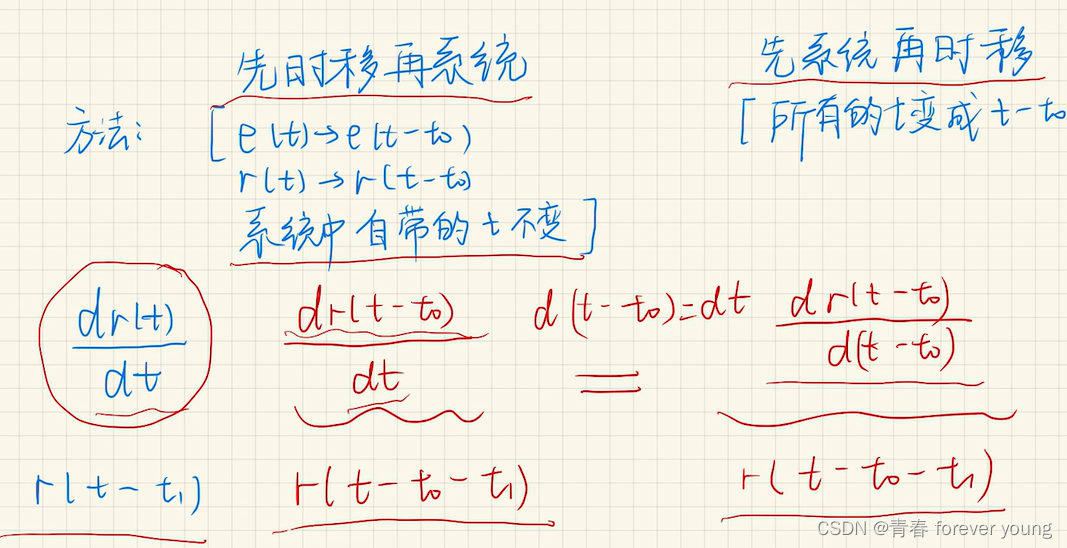 先时移再系统
先系统再时移
方法:
[e(t)→e(t-t₀)
r(t)→r(t-t₀)
系统中自带的t不变]
[所有的t变成t-t₀
dr(t)
dt
dr(t-t₀)
dt
d(t-t₀)=dt
=
dr(t-t₀)
d(t-t₀)
r(t-t₁)
r(t-t₀-t₁)
r(t-t₀-t₁)
CSDN @青春 forever young